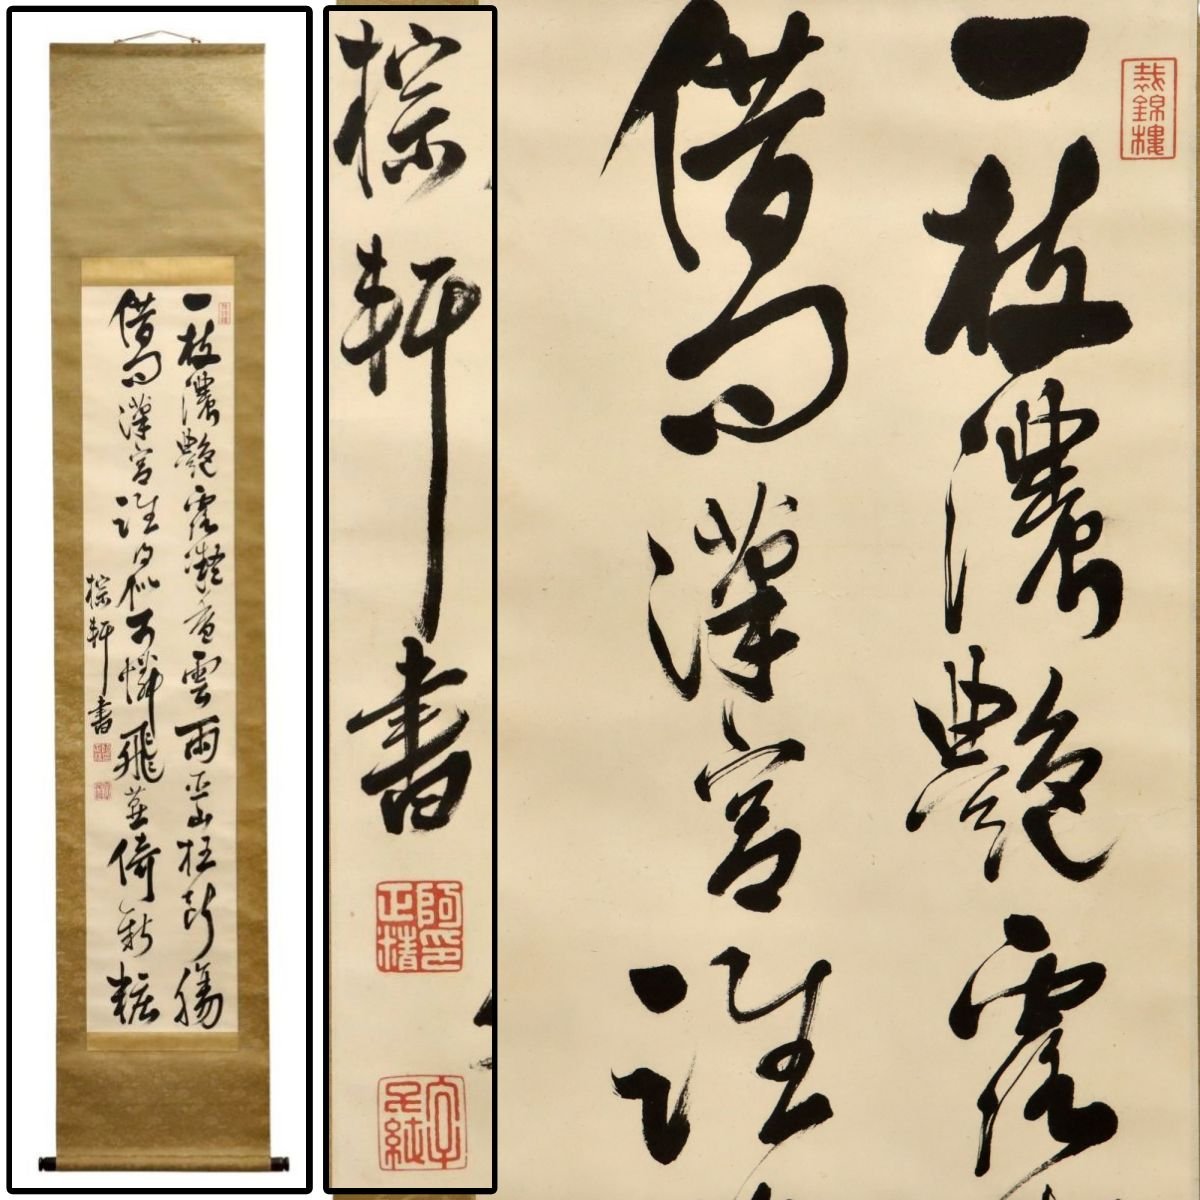 一枝濃艶露凝香雲雨巫山枉断腸
借問漢宮誰得似可憐飛燕倚新粧
棕軒書
棕軒書
阿印
正精
裁錦樓
一枝濃艶露
借問漢宮誰